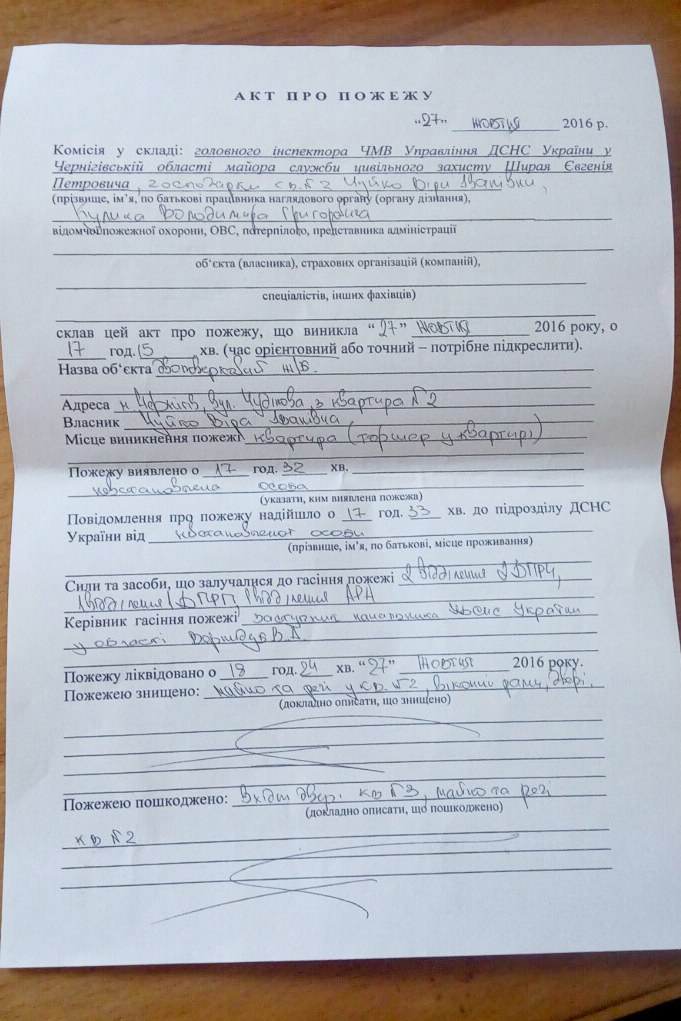 АКТ ПРО ПОЖЕЖУ
"27" жовтня 2016 р.
Комісія у складі: головного інспектора ЧМВ Управління ДСНС України у
Чернігівській області майора служби цивільного захисту Ширая Євгенія
Петровича, господарки кв.№2 Чуйко Віри Іванівни,
(прізвище, ім’я, по батькові працівника наглядового органу (органу дізнання),
Кулика Володимира Григоровича
відомчої пожежної охорони, ОВС, потерпілого, представника адміністрації
об‘єкта (власника), страхових організацій (компаній),
спеціалістів, інших фахівців)
склав цей акт про пожежу, що виникла “27” жовтня 2016 року, о
17 год. 15 хв. (час орієнтовний або точний – потрібне підкреслити).
Назва об‘єкта двоповерховий ж/б.
Адреса м. Чернігів, вул. квартира №2
Власник Чуйко Віра Іванівна
Місце виникнення пожежі квартира (торшер у квартирі)
Пожежу виявлено о 17 год. 32 хв.
невстановлена особа
(указати, ким виявлена пожежа)
Повідомлення про пожежу надійшло о 17 год. 33 хв. до підрозділу ДСНС
України від невстановленої особи
(прізвище, ім’я, по батькові, місце проживання)
Сили та засоби, що залучалися до гасіння пожежі 2 відділення 2ДПРЧ,
1 відділення
Керівник гасіння пожежі заступник начальника України
у області
Пожежу ліквідовано о 18 год. 24 хв. “27” жовтня 2016 року.
Пожежею знищено: майно та речі у кв. №2, віконні рами, двері.
(докладно описати, що знищено)
Пожежею пошкоджено: вхідні двері кв №3, майно та речі
(докладно описати, що пошкоджено)
кв №2